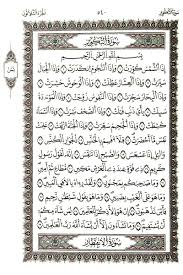 سورة التكوير
الجزء الثلاثون
سُورَةُ التَّكْوِيرِ
بِسْمِ اللَّهِ الرَّحْمَٰنِ الرَّحِيمِ
إِذَا الشَّمْسُ كُوِّرَتْ ١ وَإِذَا النُّجُومُ انكَدَرَتْ ٢ وَإِذَا الْجِبَالُ
سُيِّرَتْ ٣ وَإِذَا الْعِشَارُ عُطِّلَتْ ٤ وَإِذَا الْوُحُوشُ حُشِرَتْ ٥
وَإِذَا الْبِحَارُ سُجِّرَتْ ٦ وَإِذَا النُّفُوسُ زُوِّجَتْ ٧ وَإِذَا الْمَوْءُودَةُ سُئِلَتْ ٨
بِأَيِّ ذَنبٍ قُتِلَتْ ٩ وَإِذَا الصُّحُفُ نُشِرَتْ ١٠ وَإِذَا السَّمَاءُ
كُشِطَتْ ١١ وَإِذَا الْجَحِيمُ سُعِّرَتْ ١٢ وَإِذَا الْجَنَّةُ أُزْلِفَتْ ١٣
عَلِمَتْ نَفْسٌ مَّا أَحْضَرَتْ ١٤ فَلَا أُقْسِمُ بِالْخُنَّسِ ١٥ الْجَوَارِ الْكُنَّسِ ١٦
وَاللَّيْلِ إِذَا عَسْعَسَ ١٧ وَالصُّبْحِ إِذَا تَنَفَّسَ ١٨ إِنَّهُ لَقَوْلُ رَسُولٍ
كَرِيمٍ ١٩ ذِي قُوَّةٍ عِندَ ذِي الْعَرْشِ مَكِينٍ ٢٠ مُّطَاعٍ ثَمَّ أَمِينٍ ٢١
وَمَا صَاحِبُكُم بِمَجْنُونٍ ٢٢ وَلَقَدْ رَآهُ بِالْأُفُقِ الْمُبِينِ ٢٣
وَمَا هُوَ عَلَى الْغَيْبِ بِضَنِينٍ ٢٤ وَمَا هُوَ بِقَوْلِ شَيْطَانٍ رَّجِيمٍ ٢٥
فَأَيْنَ تَذْهَبُونَ ٢٦ إِنْ هُوَ إِلَّا ذِكْرٌ لِّلْعَالَمِينَ ٢٧ لِمَن شَاءَ مِنكُمْ
أَن يَسْتَقِيمَ ٢٨ وَمَا تَشَاءُونَ إِلَّا أَن يَشَاءَ اللَّهُ رَبُّ الْعَالَمِينَ ٢٩
سُورَةُ الانفِطَارِ